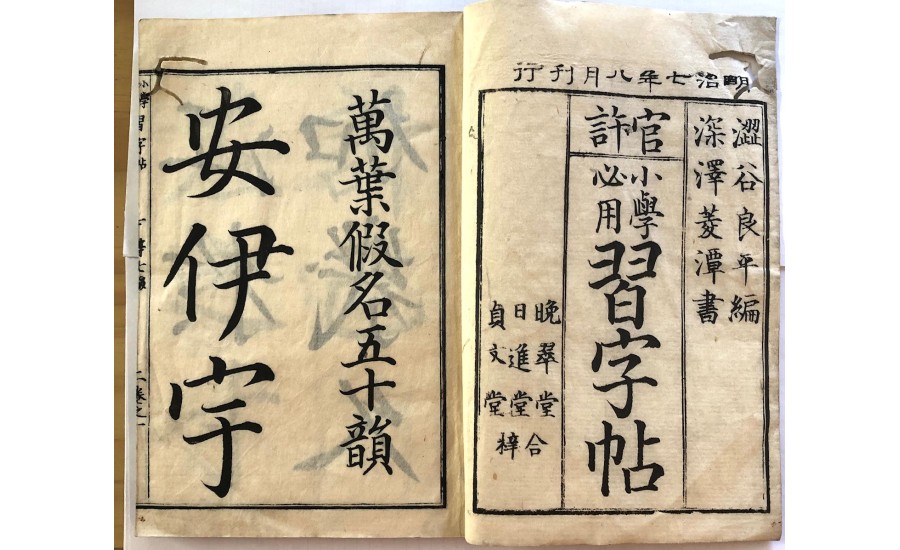 明治七年八月刊行
澀谷良平編
深澤菱潭書
官許
小學
必用
習字帖
晚翠堂
日進堂
貞文堂
合梓
萬葉假名五十韻
安伊宇
小學習字帖